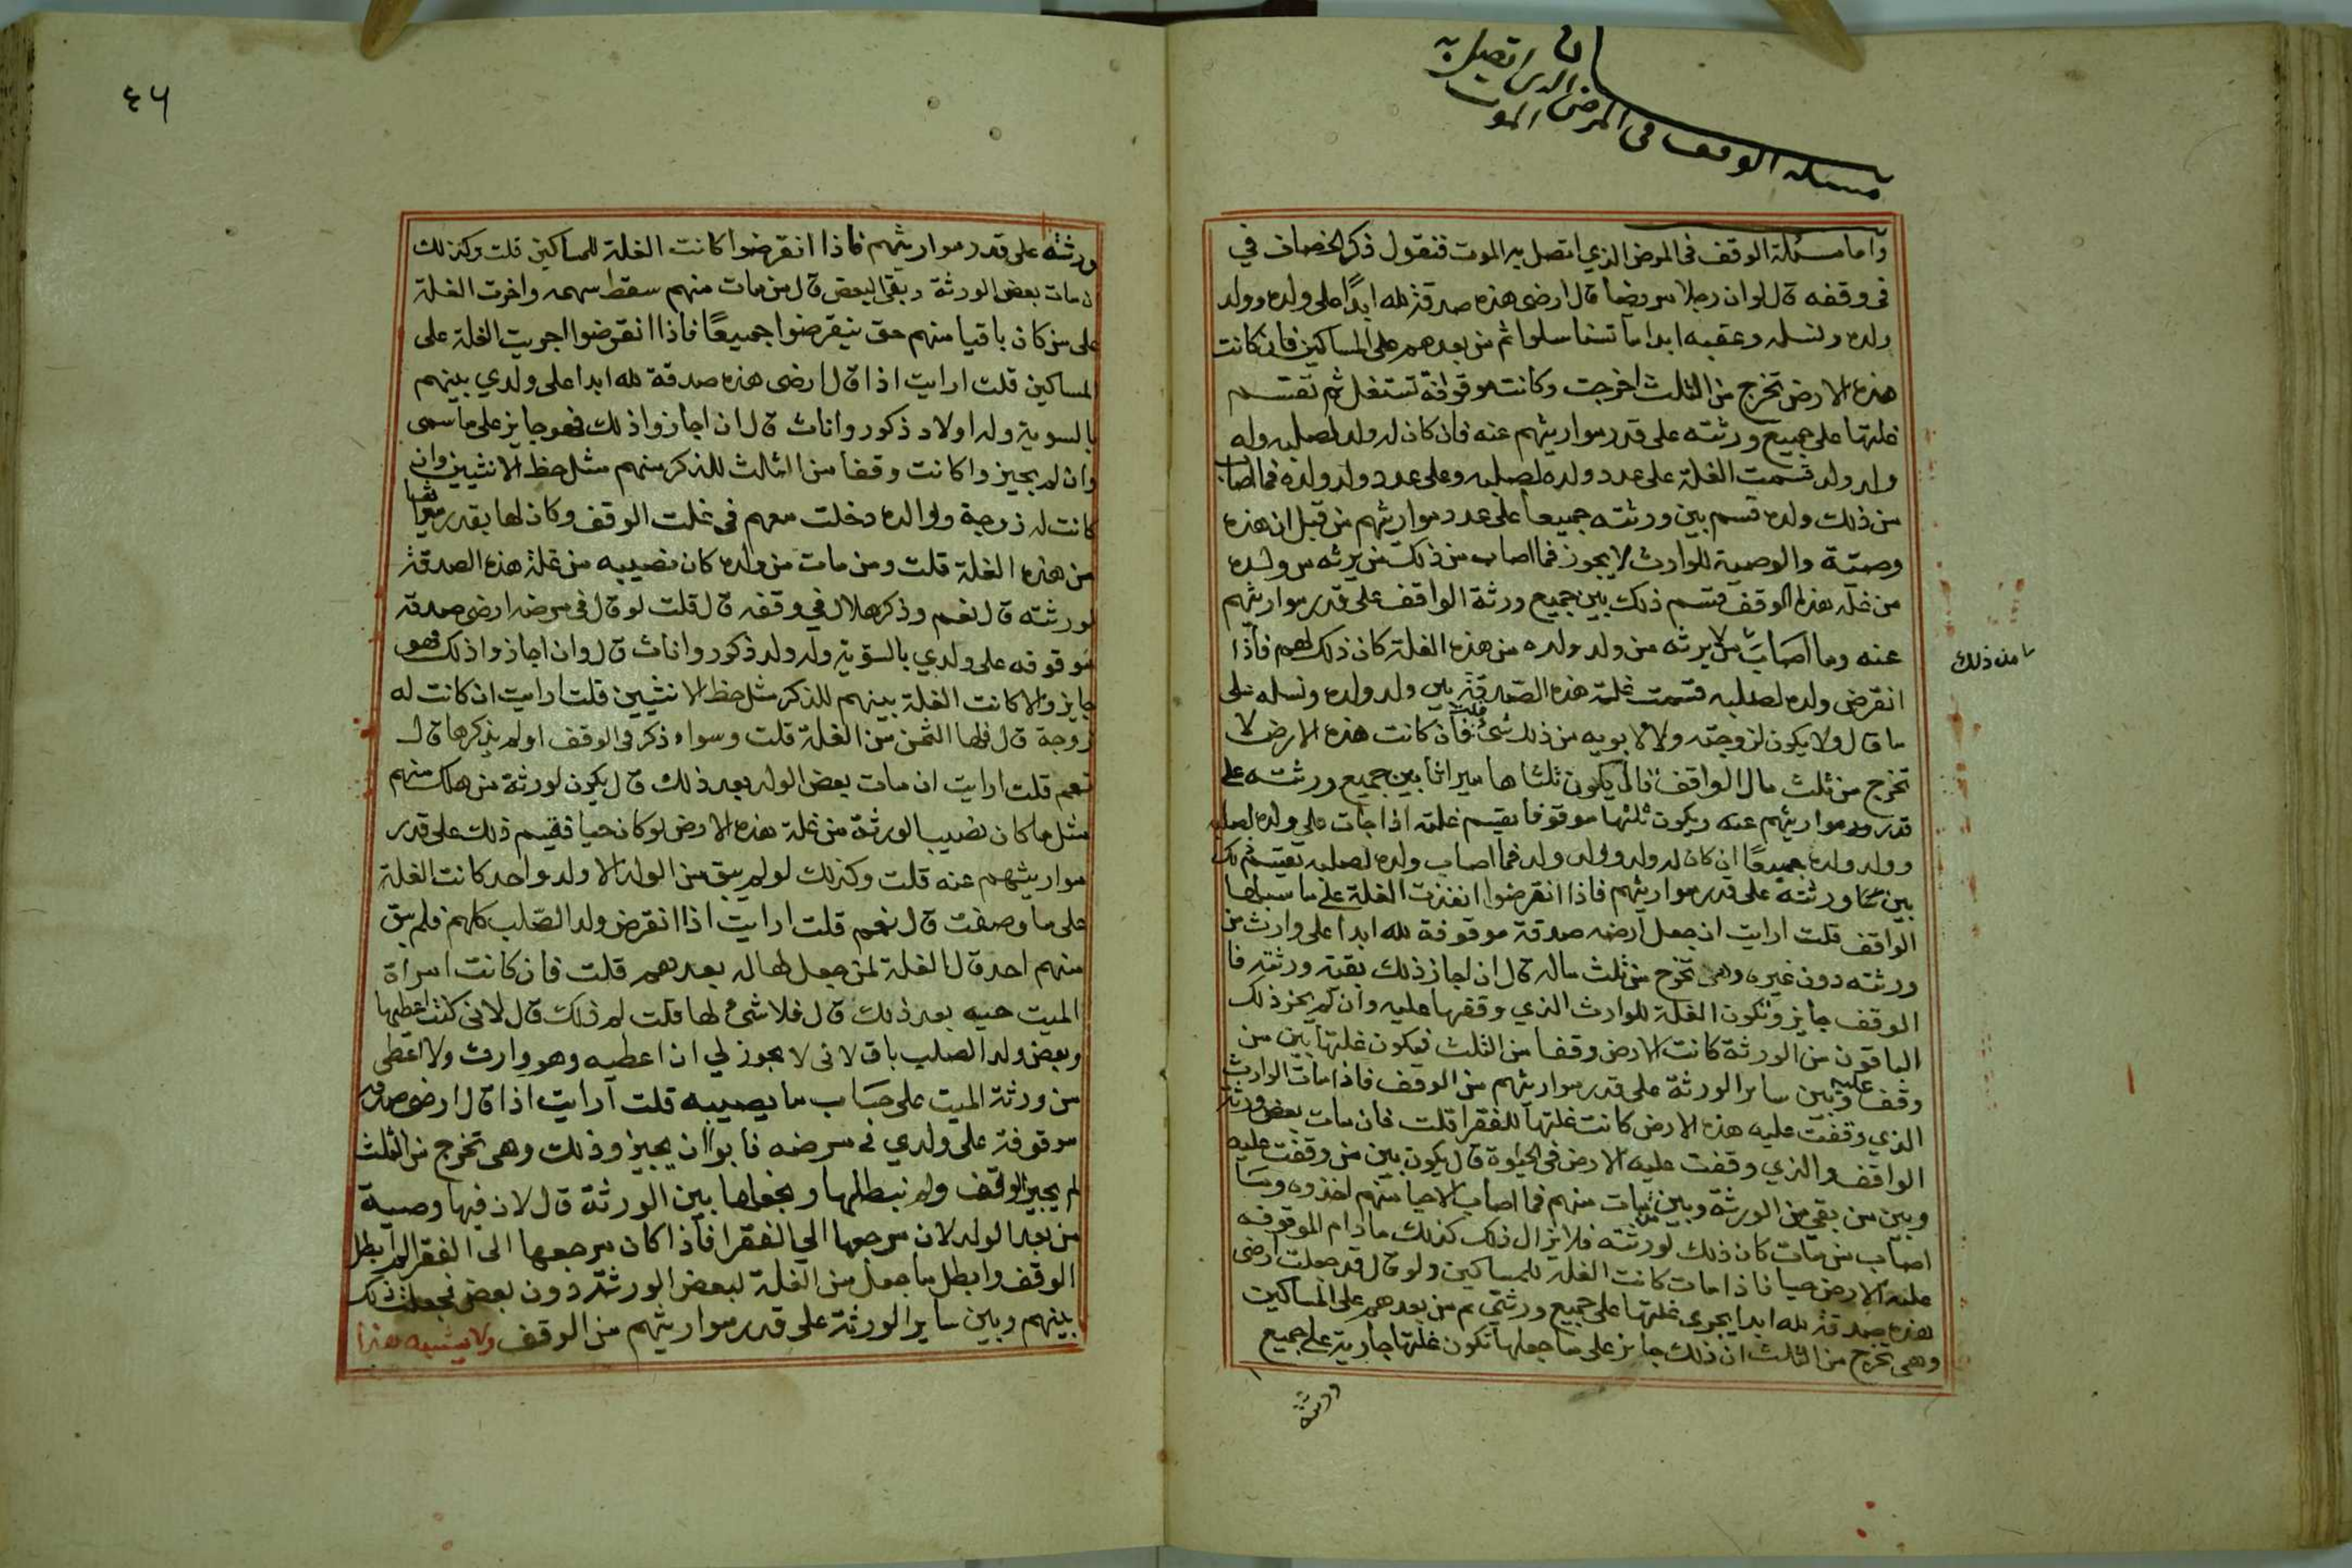 مسئلة الوقف في المرض الذي اتصل به
الموت
وأما مسئلة الوقف في المرض الذي اتصل به الموت فنقول ذكر الخصاف في
في وقفه قال لو ان رجلا مريضا قال ارضى هذه صدقة لله ابدًا على ولده وولد
ولده ونسله وعقبه ابدا ما تنا سلوا ثم من بعدهم على المساكين فان كانت
هذه الارض تخرج من الثلث اخرجت وكانت موقوفة تستغل ثم تقسم
غلتها على جميع ورثته على قدر مواريثهم عنه فان كان له ولد لصلبه وله
ولد ولد قسمت الغلة على عدد ولده لصلبه وعلى عدد ولد ولده فما اصاب
من ذلك ولده قسم بين ورثته جميعا على عدد مواريثهم من قبل ان هذه
وصية والوصية للوارث لا يجوز فما اصاب من ذلك من يرثه من ولده
من غلة هذا الوقف قسم ذلك بين جميع ورثة الواقف على قدر مواريثهم
عنه وما اصاب من لا يرثه من ولد ولده من هذه الغلة كان ذلك لهم فاذا
من ذلك
انقرض ولده لصلبه قسمت غلة هذه الصدقة بين ولد ولده ونسله على
ما قال ولا يكون لزوجته ولا لابويه من ذلك شئ قلت فان كانت هذه الارض لا
تخرج من ثلث مال الواقف قال يكون ثلثاها ميراثا بين جميع ورثته على
قدر مواريثهم عنه ويكون ثلثها موقوفا يقسم غلته اذا جات على ولده لصلبه
وولد ولده جميعًا ان كان له ولد وولد ولد فما اصاب ولده لصلبه يقسم ذلك
بين ورثته على قدر مواريثهم فاذا انقرضوا انفذت الغلة على ما سبلها
الواقف قلت ارايت ان جعل ارضه صدقة موقوفة لله ابدا على وارث من
ورثته دون غيره وهى تخرج من ثلث ماله قال ان اجاز ذلك بقية ورثته فا
الوقف جايز وتكون الغلة للوارث الذي وقفها عليه وان لم يجز ذلك
الباقون من الورثة كانت الارض وقفا من الثلث فيكون غلتها بين من
وقف عليه وبين ساير الورثة على قدر مواريثهم من الوقف فاذا مات الوارث
الذي وقفت عليه هذه الارض كانت غلتها للفقرا قلت فان مات بعض ورثة
الواقف والذي وقفت عليه الارض في الحيوة قال يكون بين من وقفت عليه
وبين من بقي من الورثة وبين من مات منهم فما اصاب الاحيا منهم اخذوه وما
اصاب من مات كان ذلك لورثته فلا يزال ذلك كذلك مادام الموقوفه
عليه الارض حيا فاذا مات كانت الغلة للمساكين ولو قال قد جعلت ارضى
هذه صدقة لله ابدا يجرى غلتها على جميع ورثتي ثم من بعدهم على المساكين
وهى تخرج من الثلث ان ذلك جايز على ما جعلها تكون غلتها جارية على جميع
ورثته
٤٦
ورثته على قدر مواريثهم فاذا انقرضوا كانت الغلة للمساكين قلت وكذلك
ان مات بعض الورثة وبقى البعض قال من مات منهم سقط سهمه واخرت الغلة
على من كان باقيا منهم حتى ينقرضوا جميعًا فاذا انقرضوا اجريت الغلة على
المساكين قلت ارايت اذا قال ارضى هذه صدقة لله ابدا على ولدي بينهم
بالسوية وله اولاد ذكور واناث قال ان اجازوا ذلك فهو جايز على ما سمى
وان لم يجيزوا كانت وقفا من الثالث للذكر منهم مثل حظ الانثيين وان
كانت له زوجة ووالده دخلت معهم في غلت الوقف وكان لها بقدر
من هذه الغلة قلت ومن مات من ولده كان نصيبه من غلة هذه الصدقة
لورثته قال نعم وذكر هلال في وقفه قال قلت لو قال في مرضه ارضى صدقة
موقوفه على ولدي بالسوية وله ولد ذكور واناث قال وان اجازوا ذلك فهو
جايز والا كانت الغلة بينهم للذكر مثل حظ الانثيين قلت ارايت ان كانت له
زوجة قال فلها الثمن من الغلة قلت وسواء ذكر في الوقف او لم يذكرها قال
نعم قلت ارايت ان مات بعض الولد بعد ذلك قال يكون لورثة من هلك منهم
مثل ما كان نصيب الورثة من غلة هذه الارض لو كان حيا فيقسم ذلك على قدر
مواريثهم عنه قلت وكذلك لو لم يبق من الولد الا ولد واحد كانت الغلة
على ما وصفت قال نعم قلت ارايت اذا انقرض ولد الصلب كلهم فلم يبق
منهم احد قال الغلة لمن جعلها له بعدهم قلت فان كانت امراة
الميت حيه بعد ذلك قال فلا شئ لها قلت لم ذلك قال لانى كنت اعطيها
وبعض ولد الصلب باق لانى لا يجوز لي ان اعطيه وهو وارث ولا اعطى
من ورثة الميت على حساب ما يصيبه قلت ارايت اذا قال ارضى صدقة
موقوفة على ولدي في مرضه فابوا ان يجيزوا ذلك وهى تخرج من الثلث
لم يجيز الوقف ولم نبطلها وجعلها بين الورثة قال لان فيها وصية
من بعد الولد لان مرجعها الي الفقرا فاذا كان مرجعها الى الفقرا لم ابطل
الوقف وابطل ما جعل من الغلة لبعض الورثة دون بعض فجعلت ذلك
بينهم وبين ساير الورثة على قدر مواريثهم من الوقف ولا يشبه هذا